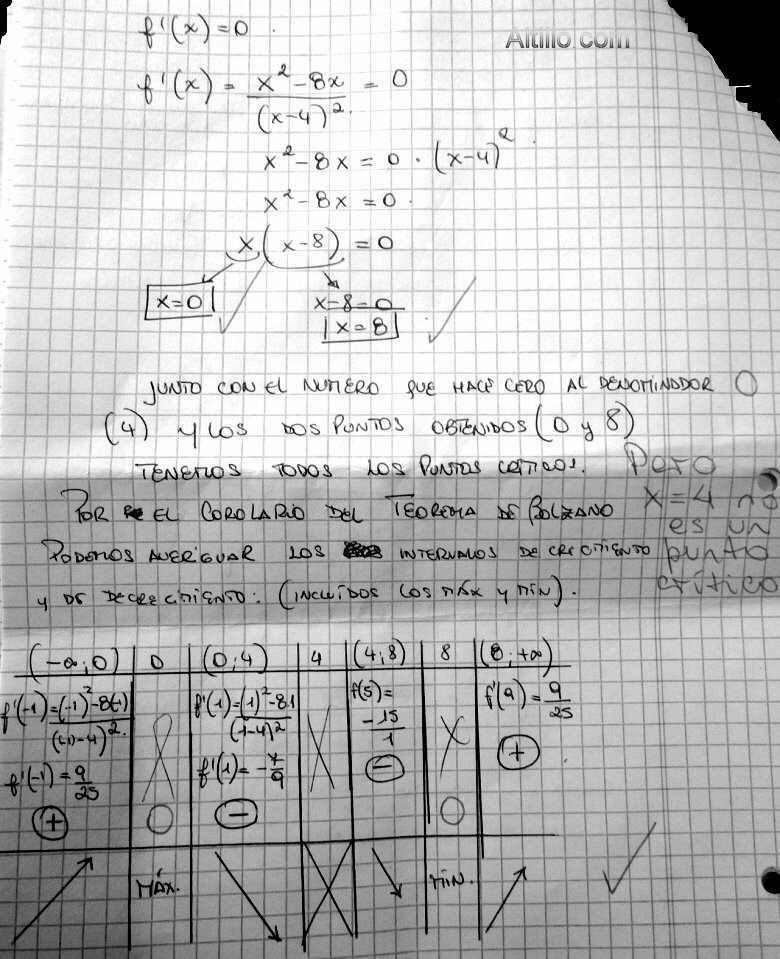 f'(x) = 0.
Altillo.com
f'(x) = x² - 8x / (x-4)². = 0
x² - 8x = 0 · (x-4)².
x² - 8x = 0.
x (x-8) = 0
x=0
x-8=0
x=8
JUNTO CON EL NUMERO QUE HACE CERO AL DENOMINADOR
(4) Y LOS DOS PUNTOS OBTENIDOS (0 y 8)
TENEMOS TODOS LOS PUNTOS CRITICOS.
Pero
x=4 no
es un
punto
crítico
POR EL COROLARIO DEL TEOREMA DE BOLZANO
PODEMOS AVERIGUAR LOS INTERVALOS DE CRECIMIENTO
Y DE DECRECIMIENTO. (INCLUÍDOS LOS MÁX Y MÍN).
(-∞;0) 0 (0;4) 4 (4;8) 8 (8;+∞)
f'(-1)=(-1)²-8(-1) / ((-1)-4)².
f'(-1)=9/25
+
0
f'(1)=(1)²-8.1 / (1-4)²
f'(1)=-7/9
-
f(5)=
-15/1
-
0
f'(9)=9/25
+
MÁX.
MÍN.